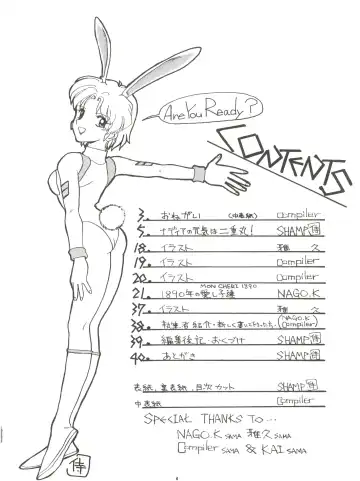 Are You Ready?
CONTENTS
3. おねがい (中表紙) Compiler
5. ナディアの元気は二重丸! SHAMP侍
18. イラスト 雅久
19. イラスト Compiler
20. イラスト Compiler
MON CHERI 1890
21. 1890年の愛し子達 NAGO.K
37. イラスト 雅久
38. 執筆者紹介・新しく NAGO.K (Compiler)
39. 編集後記・おくづけ SHAMP侍
40. あとがき SHAMP侍
表紙, 裏表紙, 目次カット SHAMP侍
中表紙 Compiler
SPECIAL THANKS TO...
NAGO.K SAMA 雅久 SAMA
Compiler SAMA & KAI SAMA
侍